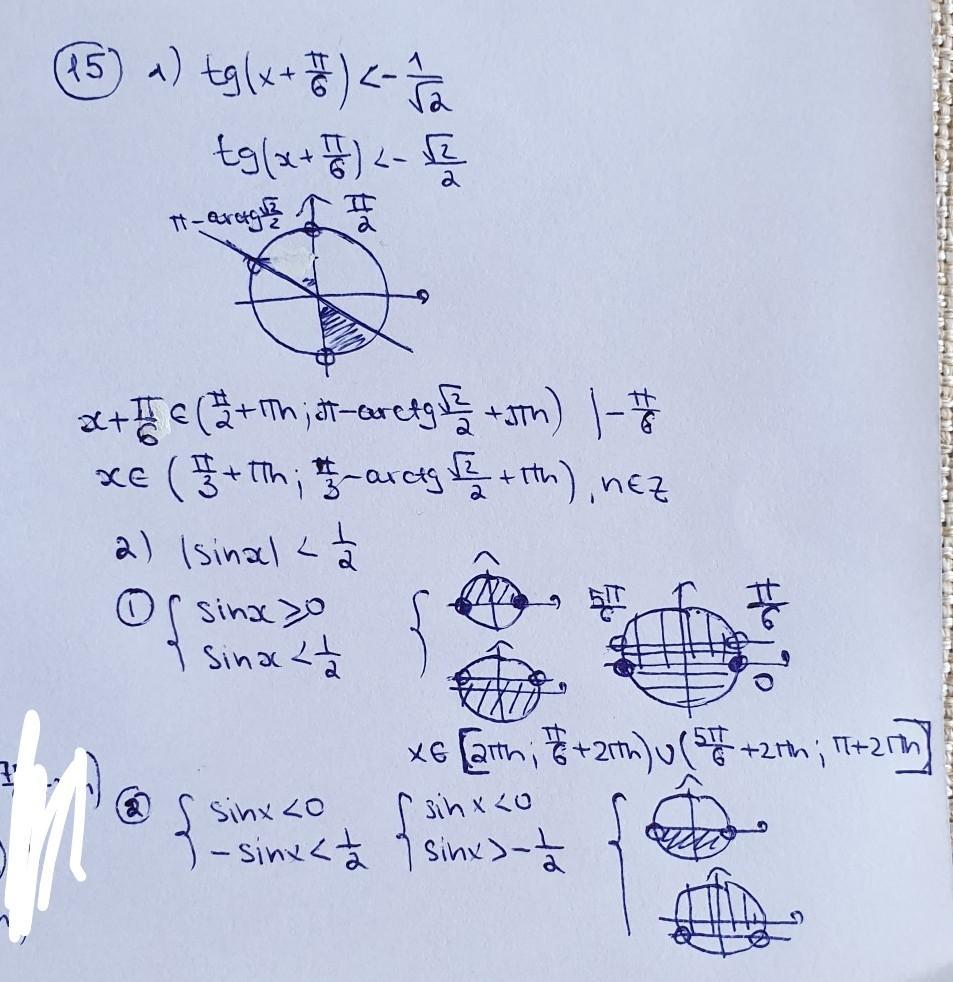 15) 1) tg(x + π/6) < - 1/√2
tg(x + π/6) < - √2/2
π - arctg √2/2 π/2
x + π/6 ∈ (π/2 + πn; π - arctg √2/2 + πn) | - π/6
x ∈ (π/3 + πn; π/3 - arctg √2/2 + πn), n ∈ Z
2) |sinx| < 1/2
① { sinx ≥ 0
sinx < 1/2
5π/6 π/6
0
x ∈ [2πn; π/6 + 2πn) ∪ (5π/6 + 2πn; π + 2πn]
② { sinx < 0 { sinx < 0 {
- sinx < 1/2 sinx > - 1/2